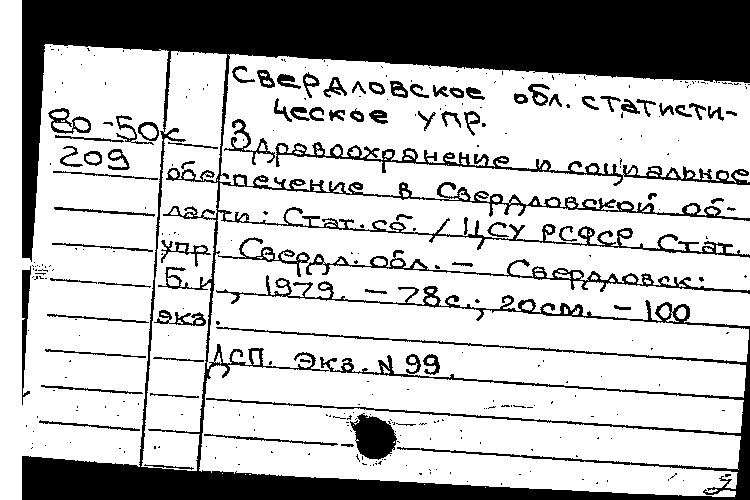 Свердловское обл. статисти-
ческое упр.
80-50к
209
Здравоохранение и социальное
обеспечение в Свердловской об-
ласти: Стат. сб. / ЦСУ РСФСР. Стат.
упр. Свердл. обл. – Свердловск:
Б. и., 1979. – 78с.; 20см. – 100
экз.
ДСП. Экз. N 99.